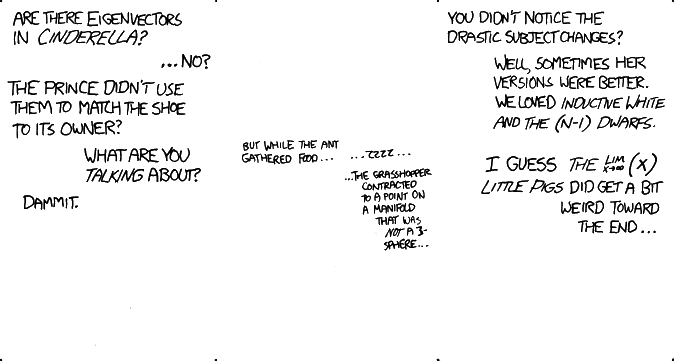 ARE THERE EIGENVECTORS
IN CINDERELLA?
...NO?
THE PRINCE DIDN'T USE
THEM TO MATCH THE SHOE
TO ITS OWNER?
WHAT ARE YOU
TALKING ABOUT?
DAMMIT.
BUT WHILE THE ANT
GATHERED FOOD...
...ZZZZ...
...THE GRASSHOPPER
CONTRACTED
TO A POINT ON
A MANIFOLD
THAT WAS
NOT A 3-
SPHERE...
YOU DIDN'T NOTICE THE
DRASTIC SUBJECT CHANGES?
WELL, SOMETIMES HER
VERSIONS WERE BETTER.
WE LOVED INDUCTIVE WHITE
AND THE (N-1) DWARFS.
I GUESS THE LIM X→∞ (X)
LITTLE PIGS DID GET A BIT
WEIRD TOWARD
THE END...